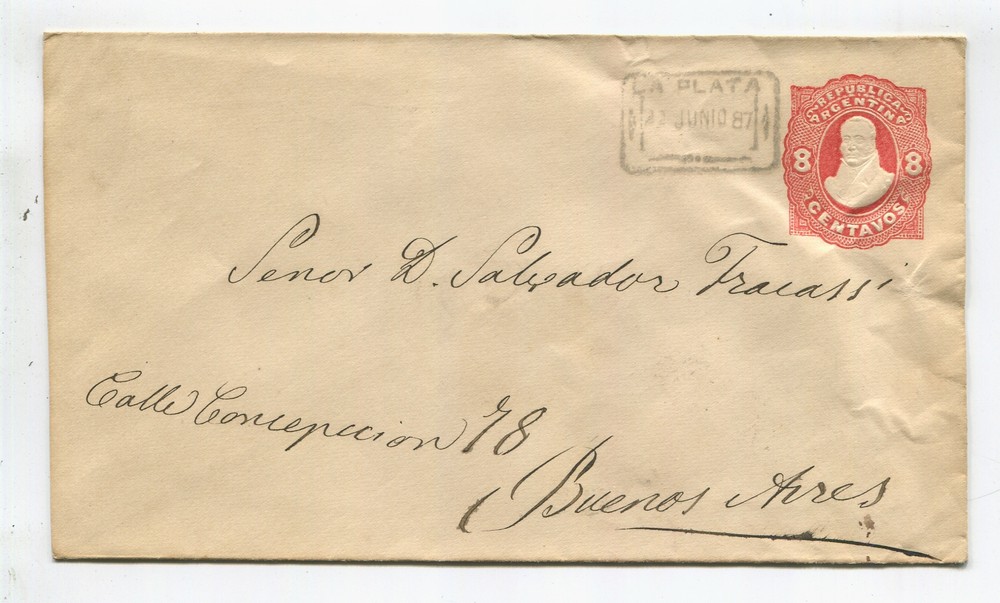 LA PLATA
JUNIO 87
REPUBLICA
ARGENTINA
8 8
CENTAVOS
Senor D. Salvador Fracassi
Calle Concepccion 78
Buenos Aires